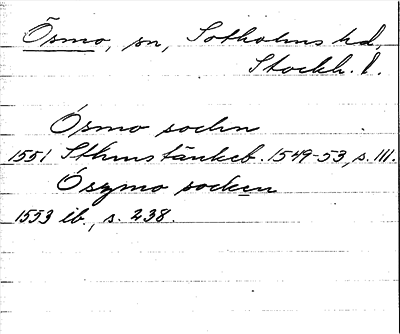 Ösmo, sn, Sotholms hd,
Stockh. l.
Ósmo sochn
1551 Sthms tänkeb. 1549-53, s. 111.
Ószmo socken
1553 ib., s. 238.